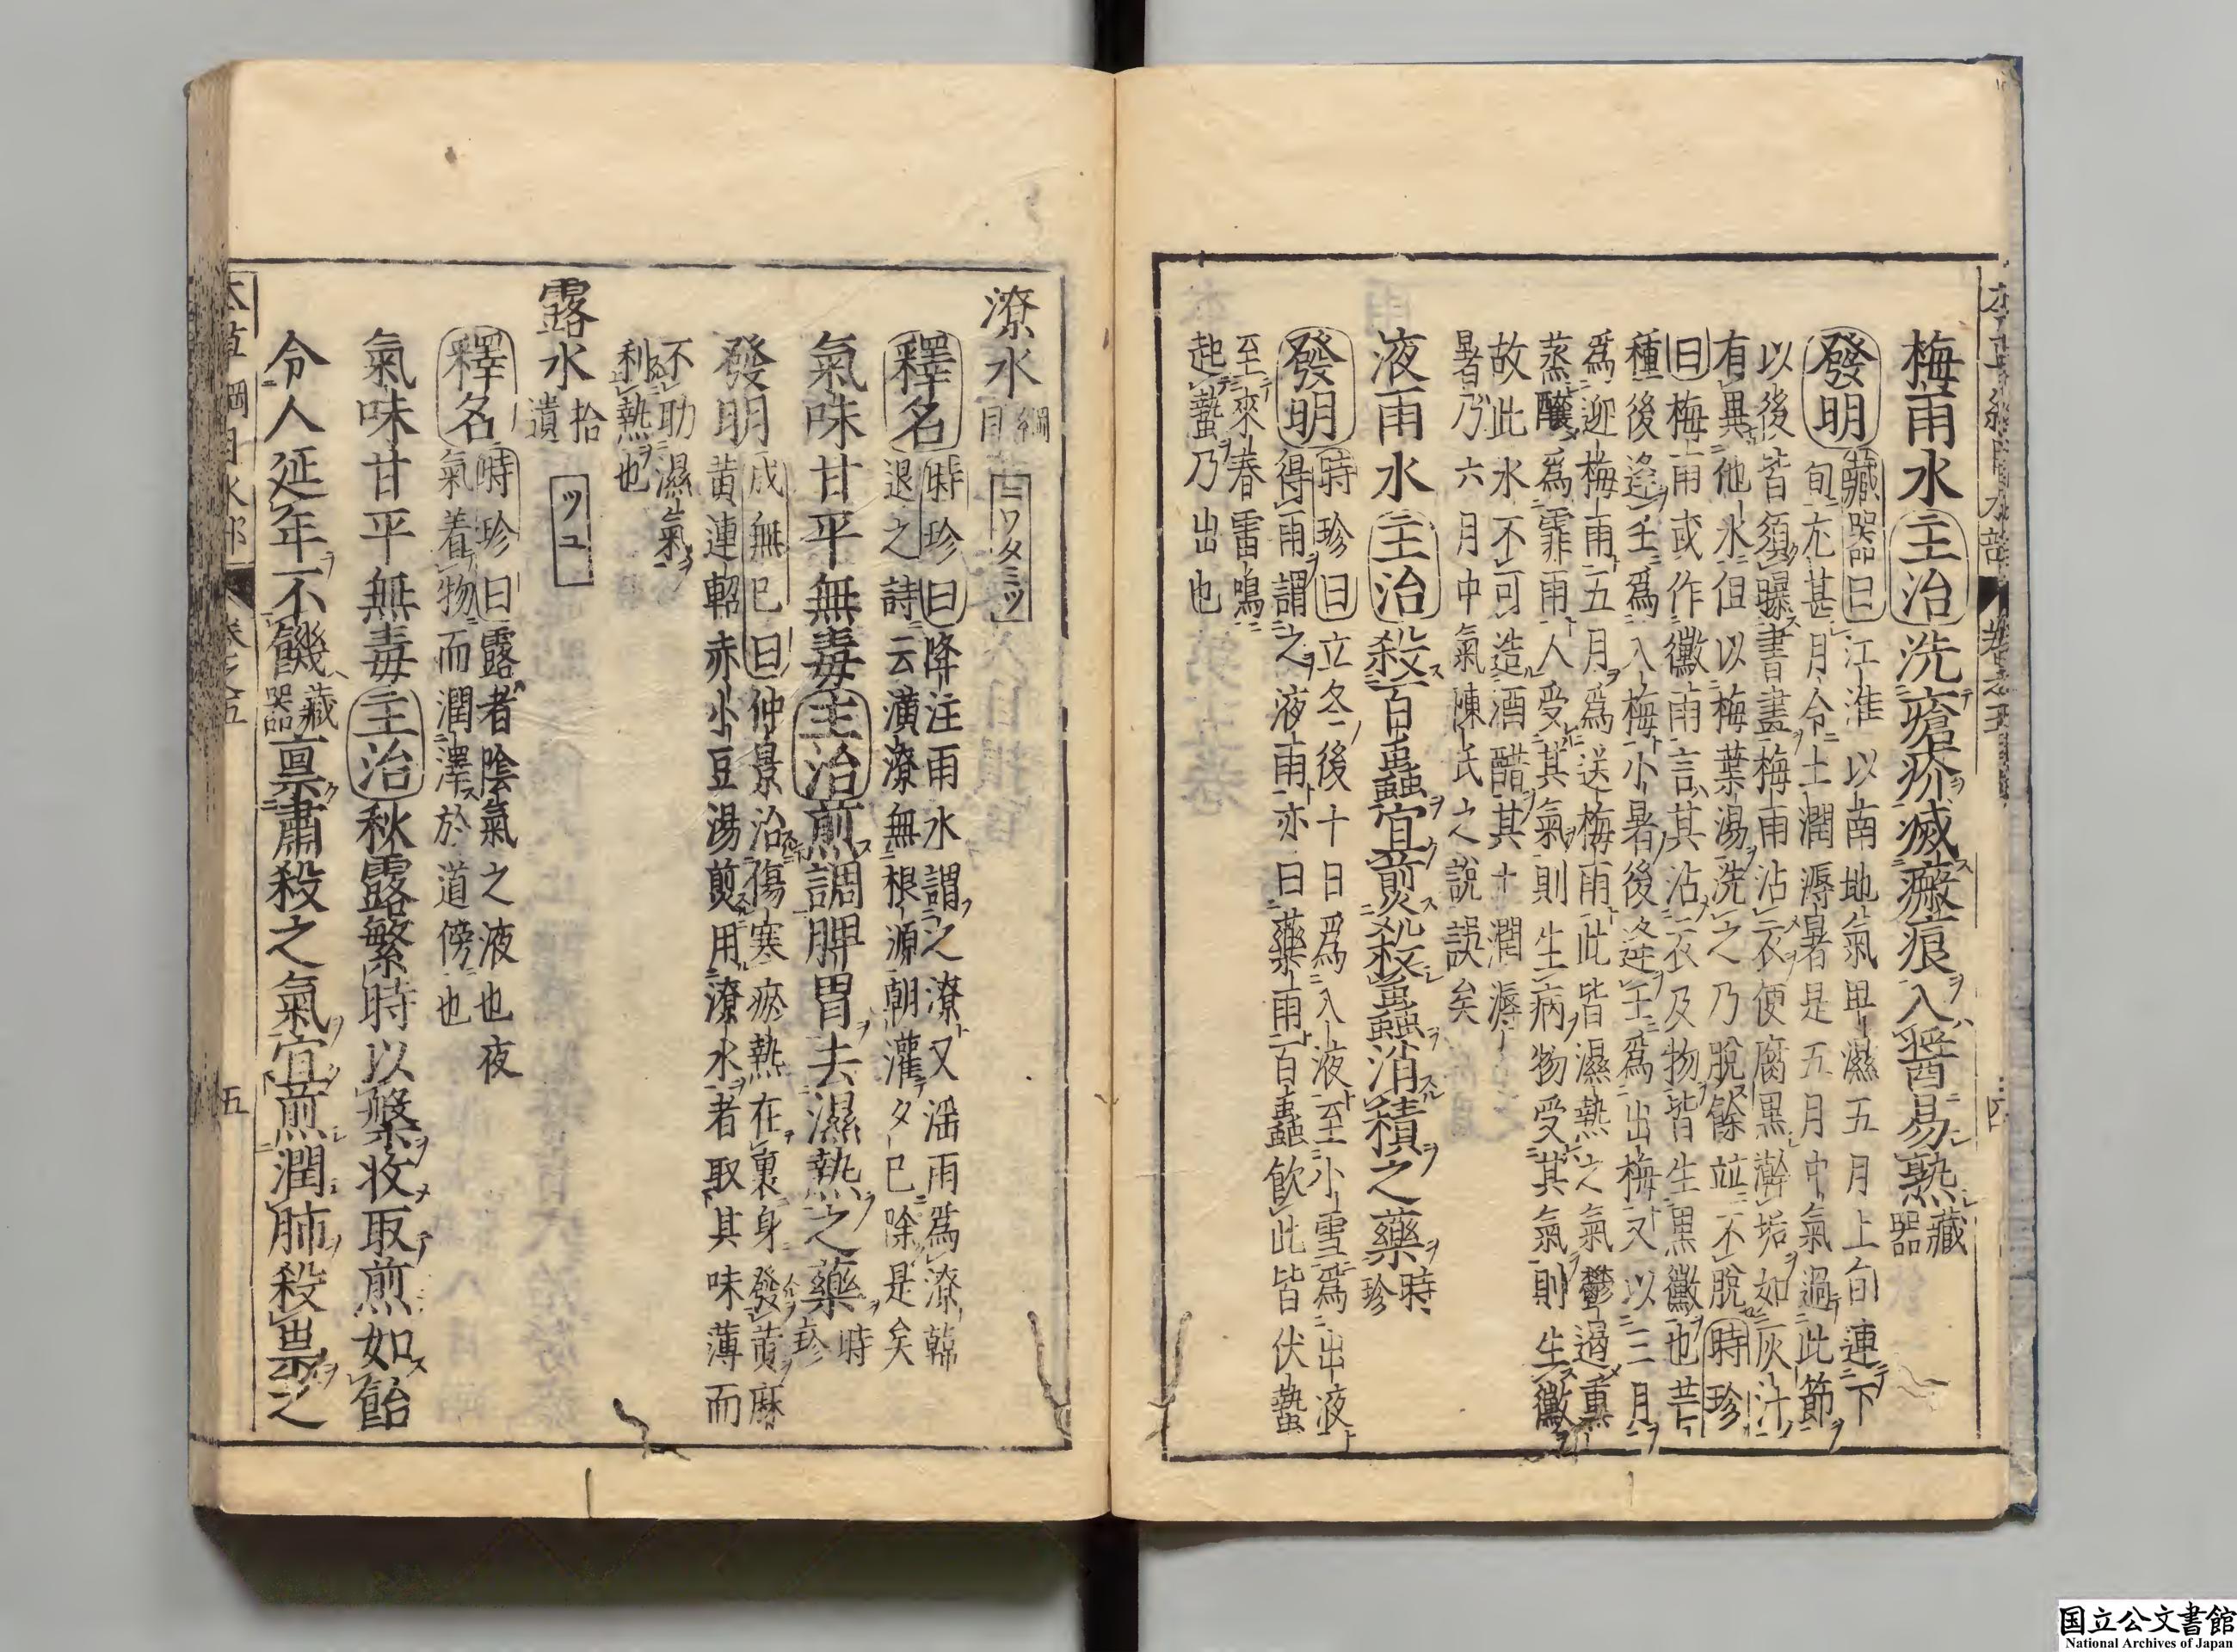 梅雨水主治洗瘡疥滅瘢痕入醬易熟藏器
發明藏器曰江淮以南地氣卑濕五月上旬連下
旬尤甚月令土潤溽暑是五月中氣過此節
以後皆須曝書畫梅雨沾衣便腐黒澣垢如灰汁
有異他水但以梅葉湯洗之乃脫餘竝不脫時珍
曰梅雨或作黴雨言其沾衣及物皆生黒黴也芒
種後逢壬爲入梅小暑後逢壬爲出梅又以三月
爲迎梅雨五月爲送梅雨此皆濕熱之氣鬱遏熏
蒸釀爲霏雨人受其氣則生病物受其氣則生黴
故此水不可造酒醋其土潤溽
暑乃六月中氣陳氏之說誤矣
液雨水主治殺百蟲宜煎殺蟲消積之藥時珍
發明時珍曰立冬後十日爲入液至小雪爲出液
得雨謂之液雨亦曰藥雨百蟲飲此皆伏蟄
至來春雷鳴
起蟄乃出也
潦水綱目ニワタミツ
釋名時珍曰降注雨水謂之潦又淫雨爲潦韓
退之詩云潢潦無根源朝灌夕已除是矣
氣味甘平無毒主治煎調脾胃去濕熱之藥時珍
發明成無已曰仲景治傷寒瘀熱在裏身發黄麻
黄連軺赤小豆湯煎用潦水者取其味薄而
不助濕氣
利熱也
露水拾遺ツユ
釋名時珍曰露者陰氣之液也夜
氣着物而潤澤於道傍也
氣味甘平無毒主治秋露繁時以槃收取煎如飴
令人延年不饑藏器稟肅殺之氣宜煎潤肺殺祟之
五
国立公文書館
National Archives of Japan